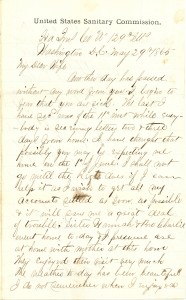 United States Sanitary Commission,
Hd Qrs Co "A" 129th Ills
Washington D.C. May 29th 1865
My dear Wife
Another day has passed
without any word from you. I begin to
fear that you are sick. The last I
had was of the 11th inst while every
body is receiving letters two & three
days from home. I have thought that
possibly you may be expecting me
home in the 1st of June. I shall not
go until the Regt does if I can
help it as I wish to get all my
accounts settled as soon as possible
& it will save me a great deal
of trouble. Miles Hannah & Mrs Charlie
went home to day & I presume are
at home with mother at this hour
They enjoyed their visit very much
The weather to day has been beautiful
I do not remember when I have